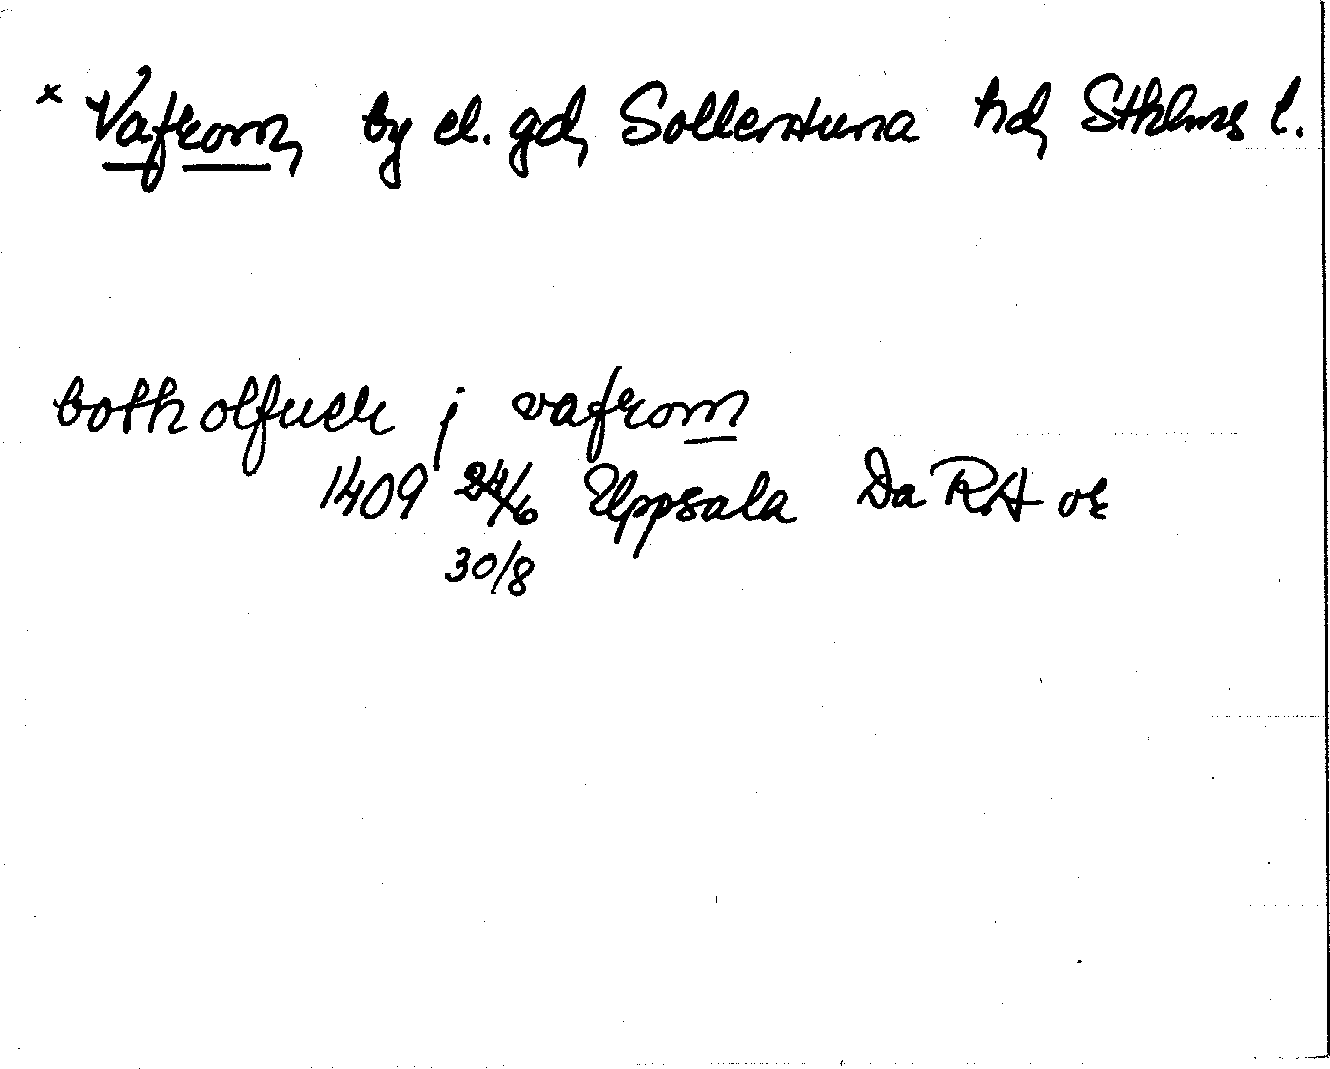 × Vafrom, by el. gd, Sollentuna hd, Sthlms l.
botholfuer j vafrom
1409 24/6 Uppsala Da RA or
30/8